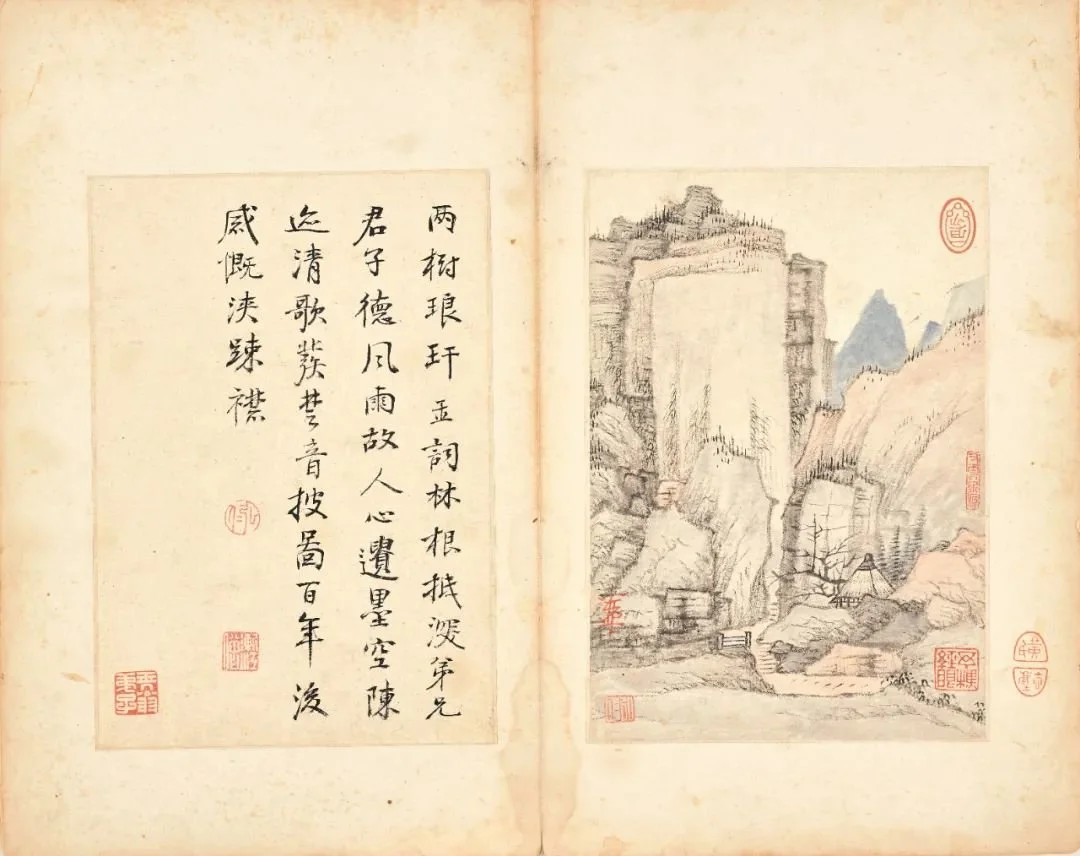 两樹琅玕玉詞林根抵深弟兄
君子德風雨故人心遺墨空陳
迹清歌發楚音披圖百年後
感慨浹踈襟